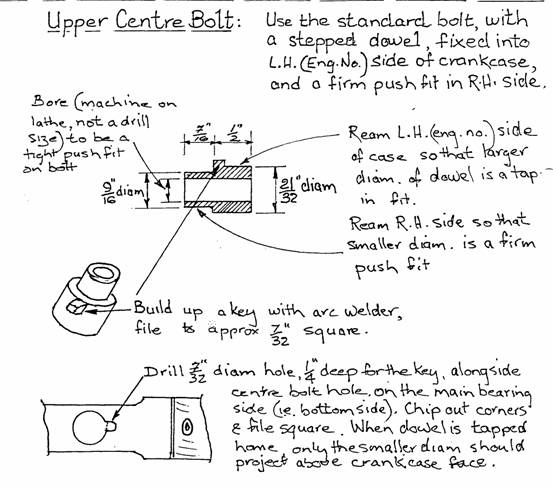 Upper Centre Bolt:
Use the standard bolt, with
a stepped dowel, fixed into
L.H. (Eng. No.) side of crankcase,
and a firm push fit in R.H. side.
Bore (machine on
lathe, not a drill
size) to be a
tight push fit
on bolt
7/16"
1/2"
9/16" diam
21/32" diam
Ream L.H. (eng. no.) side
of case so that larger
diam. of dowel is a tap-
in fit.
Ream R.H. side so that
smaller diam. is a firm
push fit
Build up a key with arc welder,
file to approx 7/32" square.
Drill 7/32" diam hole, 1/4" deep for the key, alongside
centre bolt hole, on the main bearing
side (ie. bottom side). Chip out corners
& file square. When dowel is tapped
home, only the smaller diam should
project above crankcase face.